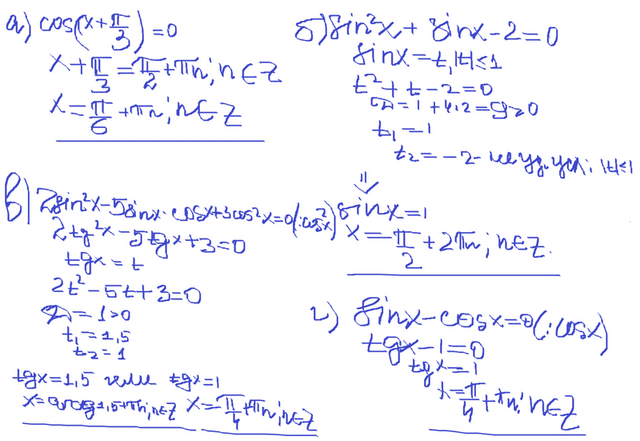 а) cos(x+π/3)=0
x+π/3=π/2+πn; n∈Z
x=π/6+πn; n∈Z
б) sin²x+sinx-2=0
sinx=t, |t|≤1
t²+t-2=0
D=1+4·2=9>0
t₁=1
t₂=-2- не уд. усл; |t|≤1
sinx=1
x=π/2+2πn; n∈Z.
в) 2sin²x-5sinx·cosx+3cos²x=0(:cos²x)
2tg²x-5tgx+3=0
tgx=t
2t²-5t+3=0
D=1>0
t₁=1,5
t₂=1
tgx=1,5 или tgx=1
x=arctg1,5+πn; n∈Z x=π/4+πn; n∈Z
г) sinx-cosx=0(:cosx)
tgx-1=0
tgx=1
x=π/4+πn; n∈Z